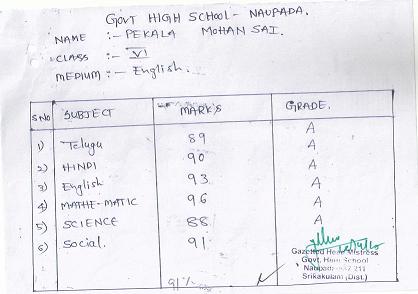 GOVT HIGH SCHOOL - NAUPADA.
NAME :- PEKALA MOHAN SAI.
CLASS :- VI
MEDIUM :- English.
S No SUBJECT MARK'S GRADE.
1) Telugu 89 A
2) HINDI 90 A
3) English 93 A
4) MATHE-MATIC 96 A
5) SCIENCE 88 A
6) Social. 91 A
Gazetted Head Mistress
Govt. High School
Naupada-532 211
Srikakulam (Dist.)
91%